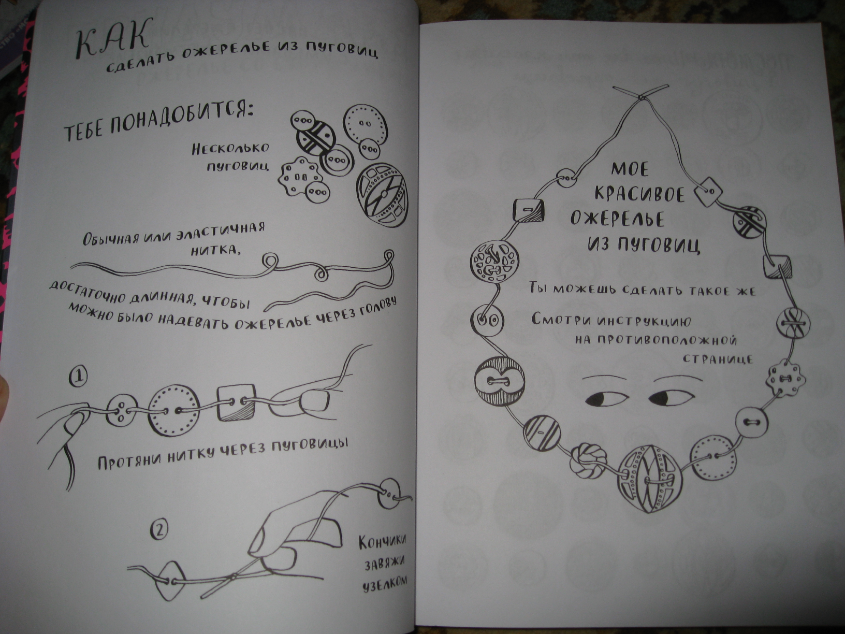 КАК
СДЕЛАТЬ ОЖЕРЕЛЬЕ ИЗ ПУГОВИЦ
ТЕБЕ ПОНАДОБИТСЯ:
НЕСКОЛЬКО
ПУГОВИЦ
ОБЫЧНАЯ ИЛИ ЭЛАСТИЧНАЯ
НИТКА,
ДОСТАТОЧНО ДЛИННАЯ, ЧТОБЫ
МОЖНО БЫЛО НАДЕВАТЬ ОЖЕРЕЛЬЕ ЧЕРЕЗ ГОЛОВУ
1
ПРОТЯНИ НИТКУ ЧЕРЕЗ ПУГОВИЦЫ
2
КОНЧИКИ
ЗАВЯЖИ
УЗЕЛКОМ
МОЕ
КРАСИВОЕ
ОЖЕРЕЛЬЕ
ИЗ ПУГОВИЦ
ТЫ МОЖЕШЬ СДЕЛАТЬ ТАКОЕ ЖЕ
СМОТРИ ИНСТРУКЦИЮ
НА ПРОТИВОПОЛОЖНОЙ
СТРАНИЦЕ